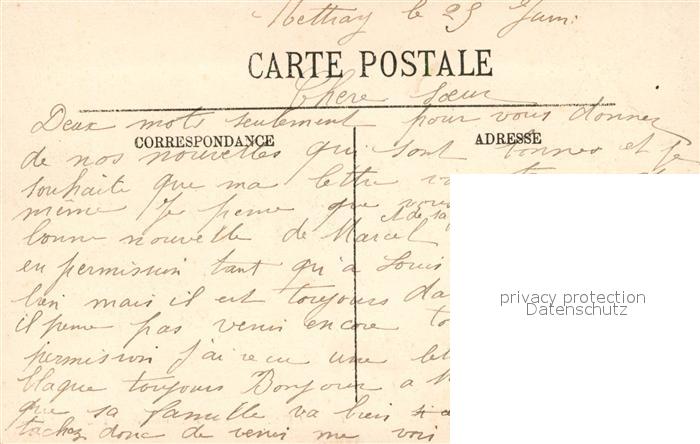 Mettray le 25 Juin.
CARTE POSTALE
Chere Sœur
Deux mots seulement pour vous donnez
CORRESPONDANCE
ADRESSE
de nos nouvelles qui sont bonnes et je
souhaite que ma lettre
même Je pense que vous
A de sa
bonne nouvelle de Marcel
en permission tant qu'a Louis
bien mais il est toujours da
il pense pas venir encore
permission j'ai recu une le
blaque toujours Bonjour a
que sa famille va bien
tachez donc de venir me voir
privacy protection
Datenschutz